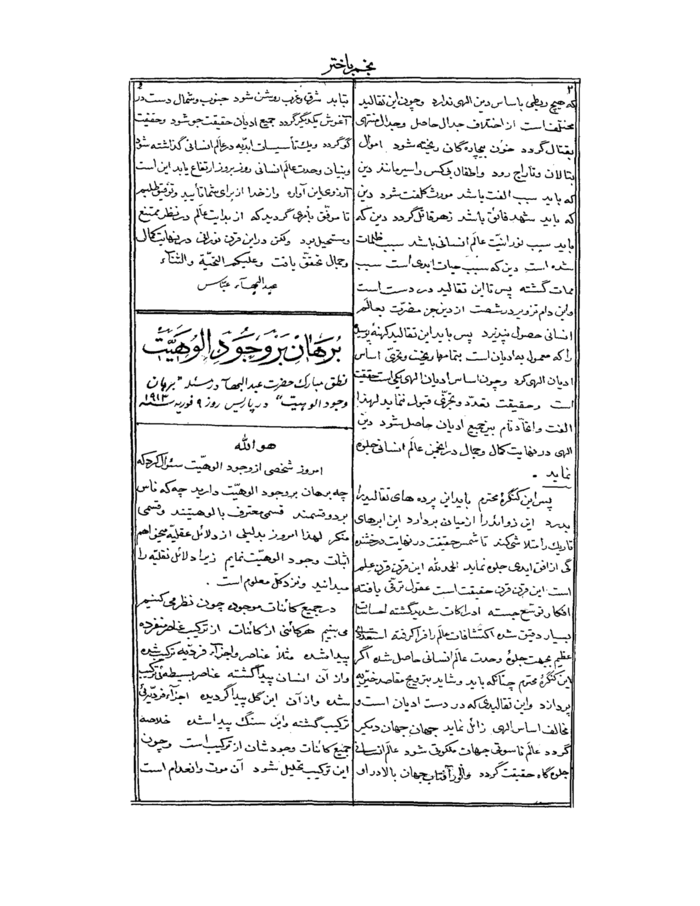 نجم باختر
۲
که هیچ ربطی باساس دین الهی ندارد و چون این تقالید
مختلف است از اختلاف جدال حاصل و جدال منتهی
بقتال گردد خون بیچارگان ریخته شود اموال
بتالان و تاراج رود و اطفال بیکس و اسیر مانند دین
که باید سبب الفت باشد مورث کلفت شود دین
که باید شهد فائق باشد زهر قاتل گردد دین که
باید سبب نورانیت عالم انسانی باشد سبب ظلمات
شده است دین که سبب حیات ابدی است سبب
ممات گشته پس تا این تقالید در دست است
و این دام تزویر در شصت از دین جز مضرت بعالم
انسانی حصول نپذیرد پس باید این تقالید کهنه پوسیده
را که معمول به ادیان است بتمامها ریخت و تحری اساس
ادیان الهی کرد و چون اساس ادیان الهی یکی است حقیقت
است و حقیقت تعدد و تجزی قبول ننماید لهذا
الفت و اتحاد تام بین جمیع ادیان حاصل شود دین
الهی در نهایت کمال و جمال در انجمن عالم انسانی جلوه
نماید .
پس این کنگرهٔ محترم باید این پرده های تقالید را
بدرد این زوائد را از میان بردارد این ابرهای
تاریک را متلاشی کند تا شمس حقیقت در نهایت درخشنده
گی از افق ابدی جلوه نماید الحمدلله این قرن قرن علم
است این قرن قرن حقیقت است عقول ترقی یافته
افکار توسع جسته ادراکات شدید گشته احساسات
بسیار دقیق شده اکتشافات عالم را فرا گرفته استعداد
عظیم بجهت جلوهٔ وحدت عالم انسانی حاصل شده اگر
این کنگرهٔ محترم چنانکه باید و شاید بترویج مقاصد خیریه
پردازد و این تقالیدی که در دست ادیان است و
مخالف اساس الهی زائل نماید جهان جهان دیگر
گردد عالم ناسوتی جهان ملکوتی شود عالم انسانی
جلوه گاه حقیقت گردد و انوار آفتاب جهان بالا در او
بتابد شرق و غرب روشن شود جنوب و شمال دست در
آغوش یکدیگر گردد جمیع ادیان حقیقت جو شود و حقیقت
گو گردد و یک تأسیسات ابدیه در عالم انسانی گذاشته شود
و بنیان وحدت عالم انسانی روز بروز ارتفاع یابد این است
آرزوی این آواره و از خدا از برای شما تأیید و توفیق طلبم
تا موفق بامری گردید که از بدایت عالم در نظر ممتنع
و مستحیل بود ولکن در این قرن نورانی در نهایت کمال
و جمال تحقق یافت و علیکم التحیة و الثناء
عبدالبهاء عباس
برهان بر وجود الوهیت
نطق مبارک حضرت عبدالبهاء در مسئلهٔ "برهان
وجود الوهیت" در پاریس روز ۹ فوریه سنه ۱۹۱۳
هوالله
امروز شخصی از وجود الوهیت سئوال کرد که
چه برهان بر وجود الوهیت دارید چه که ناس
بر دو قسمند قسمی معترف بالوهیتند و قسمی
منکر لهذا امروز بدلیلی از دلائل عقلیه میخواهم
اثبات وجود الوهیت نمایم زیرا دلائل نقلیه را
میدانید و نزد کل معلوم است .
در جمیع کائنات موجوده چون نظر می کنیم
می بینیم هر کائنی از کائنات از ترکیب عناصر مفرده
پیدا شده مثلاً عناصر و اجزاء فردیه ترکیب شده
و از آن انسان پیدا گشته عناصر بسیطه ئی ترکیب
شده و از آن این گل پیدا گردیده اجزاء فردیه ئی
ترکیب گشته و این سنگ پیدا شده خلاصه
جمیع کائنات وجودشان از ترکیب است و چون
این ترکیب تحلیل شود آن موت و انعدام است